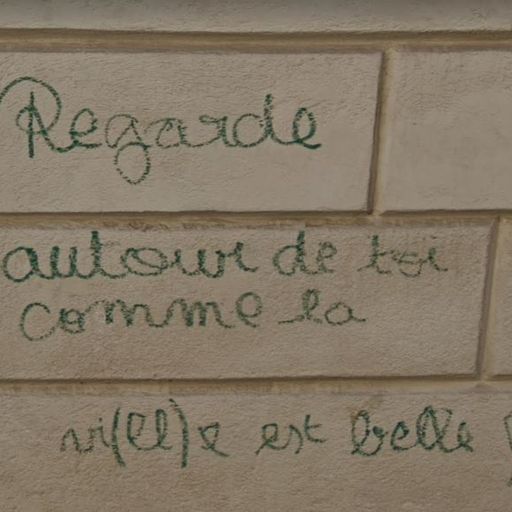 Regarde
autour de toi
comme la
vi(ll)e est belle